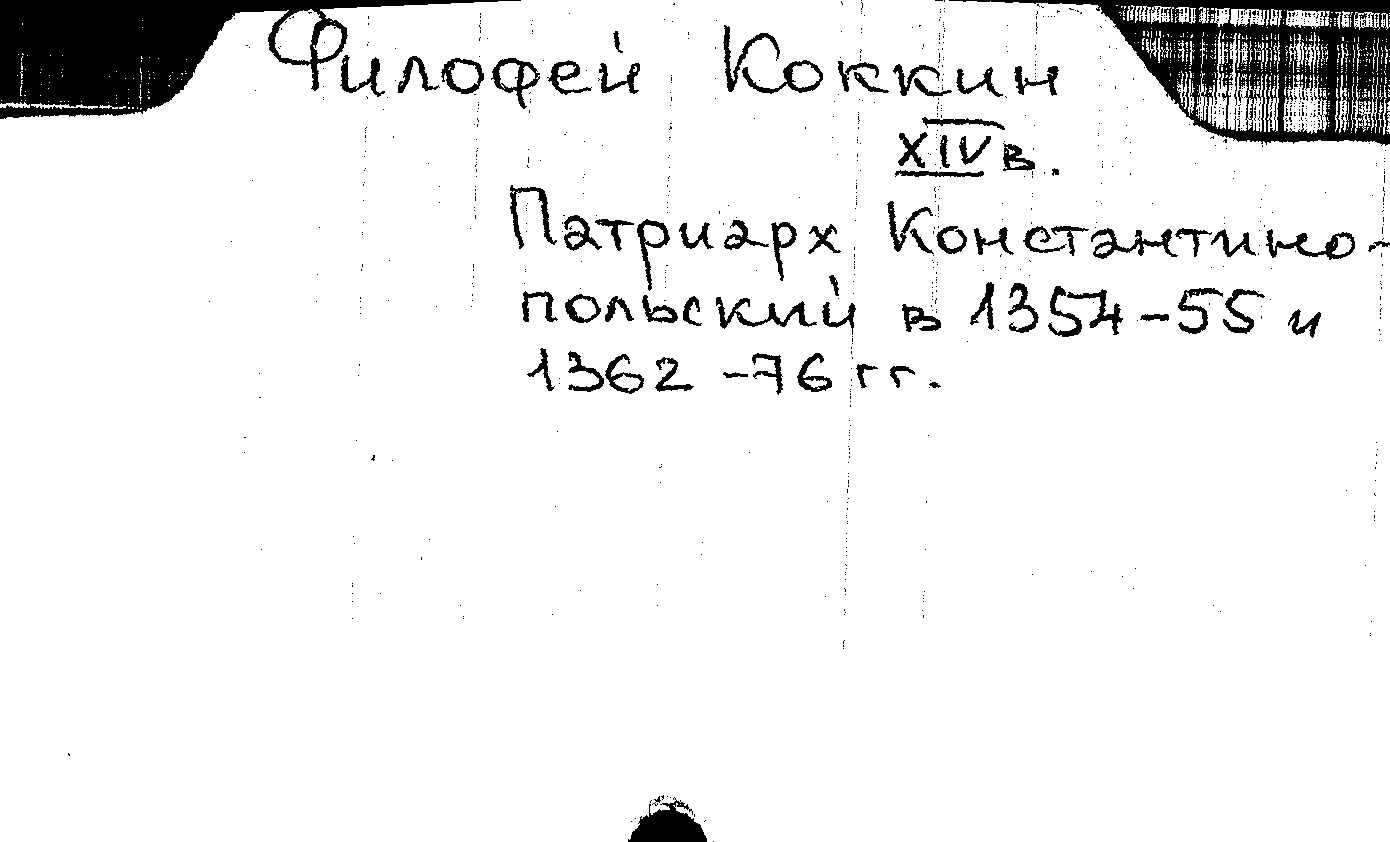 Филофей Коккин
XIV в.
Патриарх Константино-
польский в 1354-55 и
1362-76 гг.